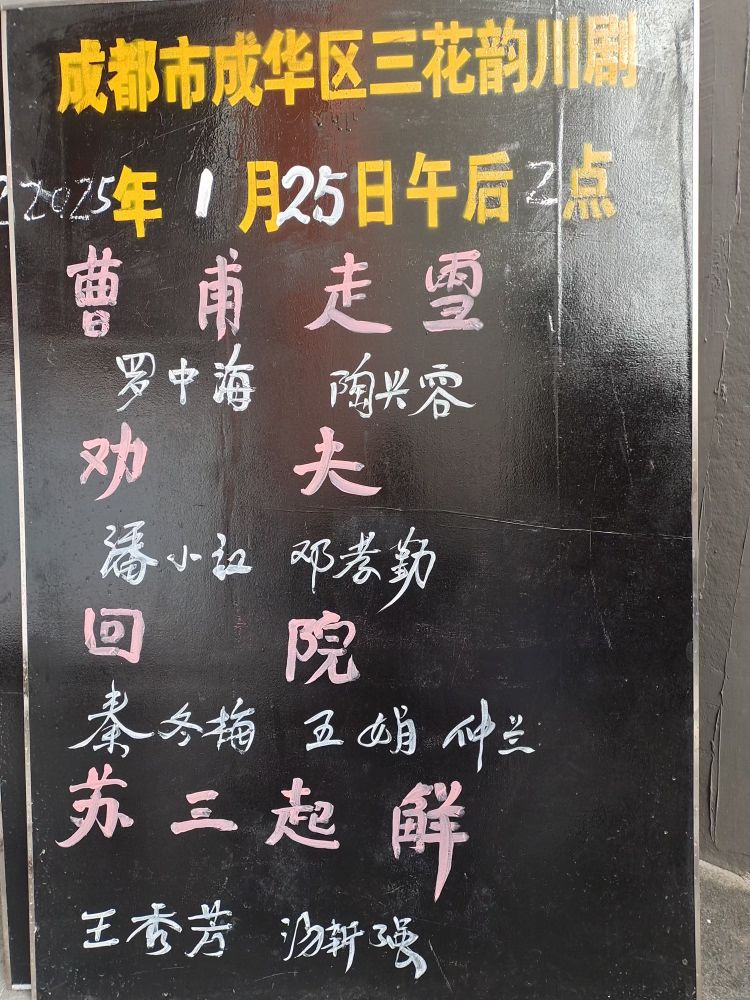 成都市成华区三花韵川剧
2025年1月25日午后2点
曹甫走雪
罗中海 陶兴容
劝夫
潘小红 邓孝勤
回院
秦冬梅 王娟 仲兰
苏三起解
王秀芳 汤新强